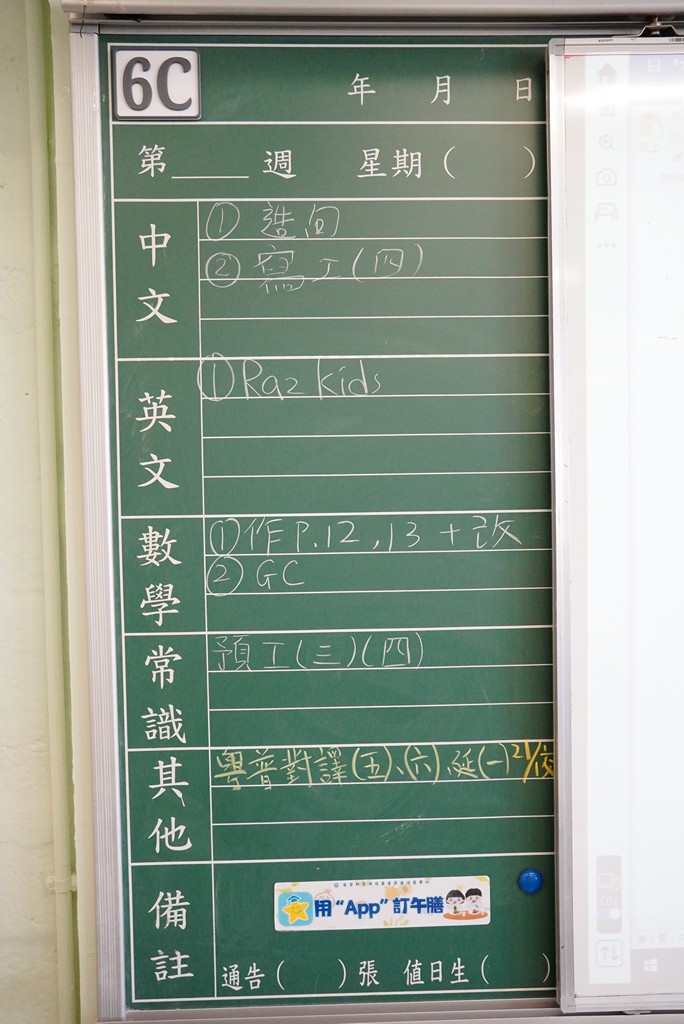 6C
年 月 日
第____週 星期( )
中文
① 造句
② 寫工(四)
英文
① Raz kids
數學
① 作 P.12,13 + 改
② GC
常識
預工(三)(四)
其他
粵普對譯(五)、(六)延(一)21/
備註
用“App”訂午膳
通告( )張 值日生( )